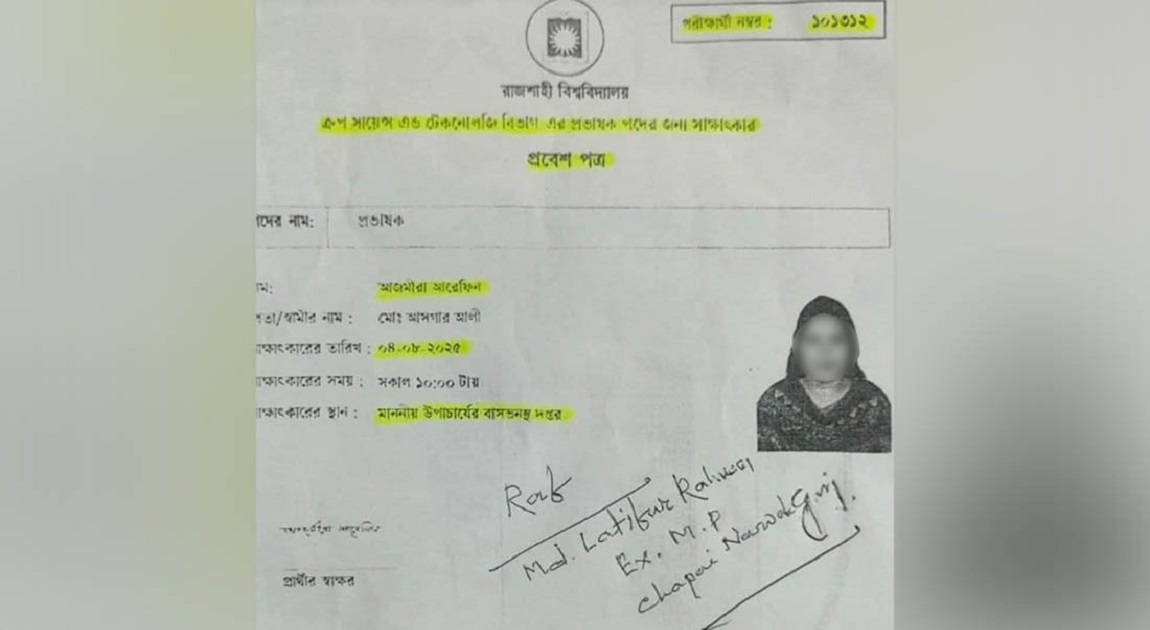 পরীক্ষার্থী নম্বর : ১০১৩১২
রাজশাহী বিশ্ববিদ্যালয়
ক্রপ সায়েন্স এন্ড টেকনোলজি বিভাগ এর প্রভাষক পদের জন্য সাক্ষাৎকার
প্রবেশ পত্র
পদের নাম: প্রভাষক
নাম: আজমীরা আরেফিন
পিতা/স্বামীর নাম : মোঃ আসগার আলী
সাক্ষাৎকারের তারিখ : ০৪-০৮-২০২৫
সাক্ষাৎকারের সময় : সকাল ১০:০০ টায়
সাক্ষাৎকারের স্থান : মাননীয় উপাচার্যের বাসভবনস্থ দপ্তর
Md. Latifur Rahman
Ex. M.P
chapai Nawabgonj.
প্রার্থীর স্বাক্ষর